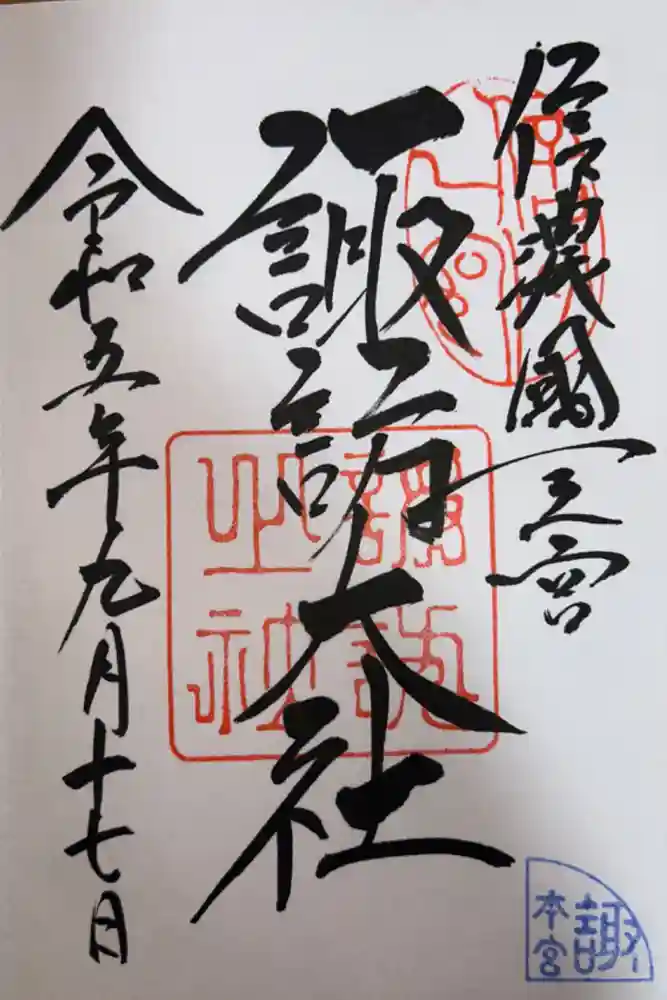 信濃國一之宮
諏訪大社
令和五年九月十七日
諏訪
神
本宮